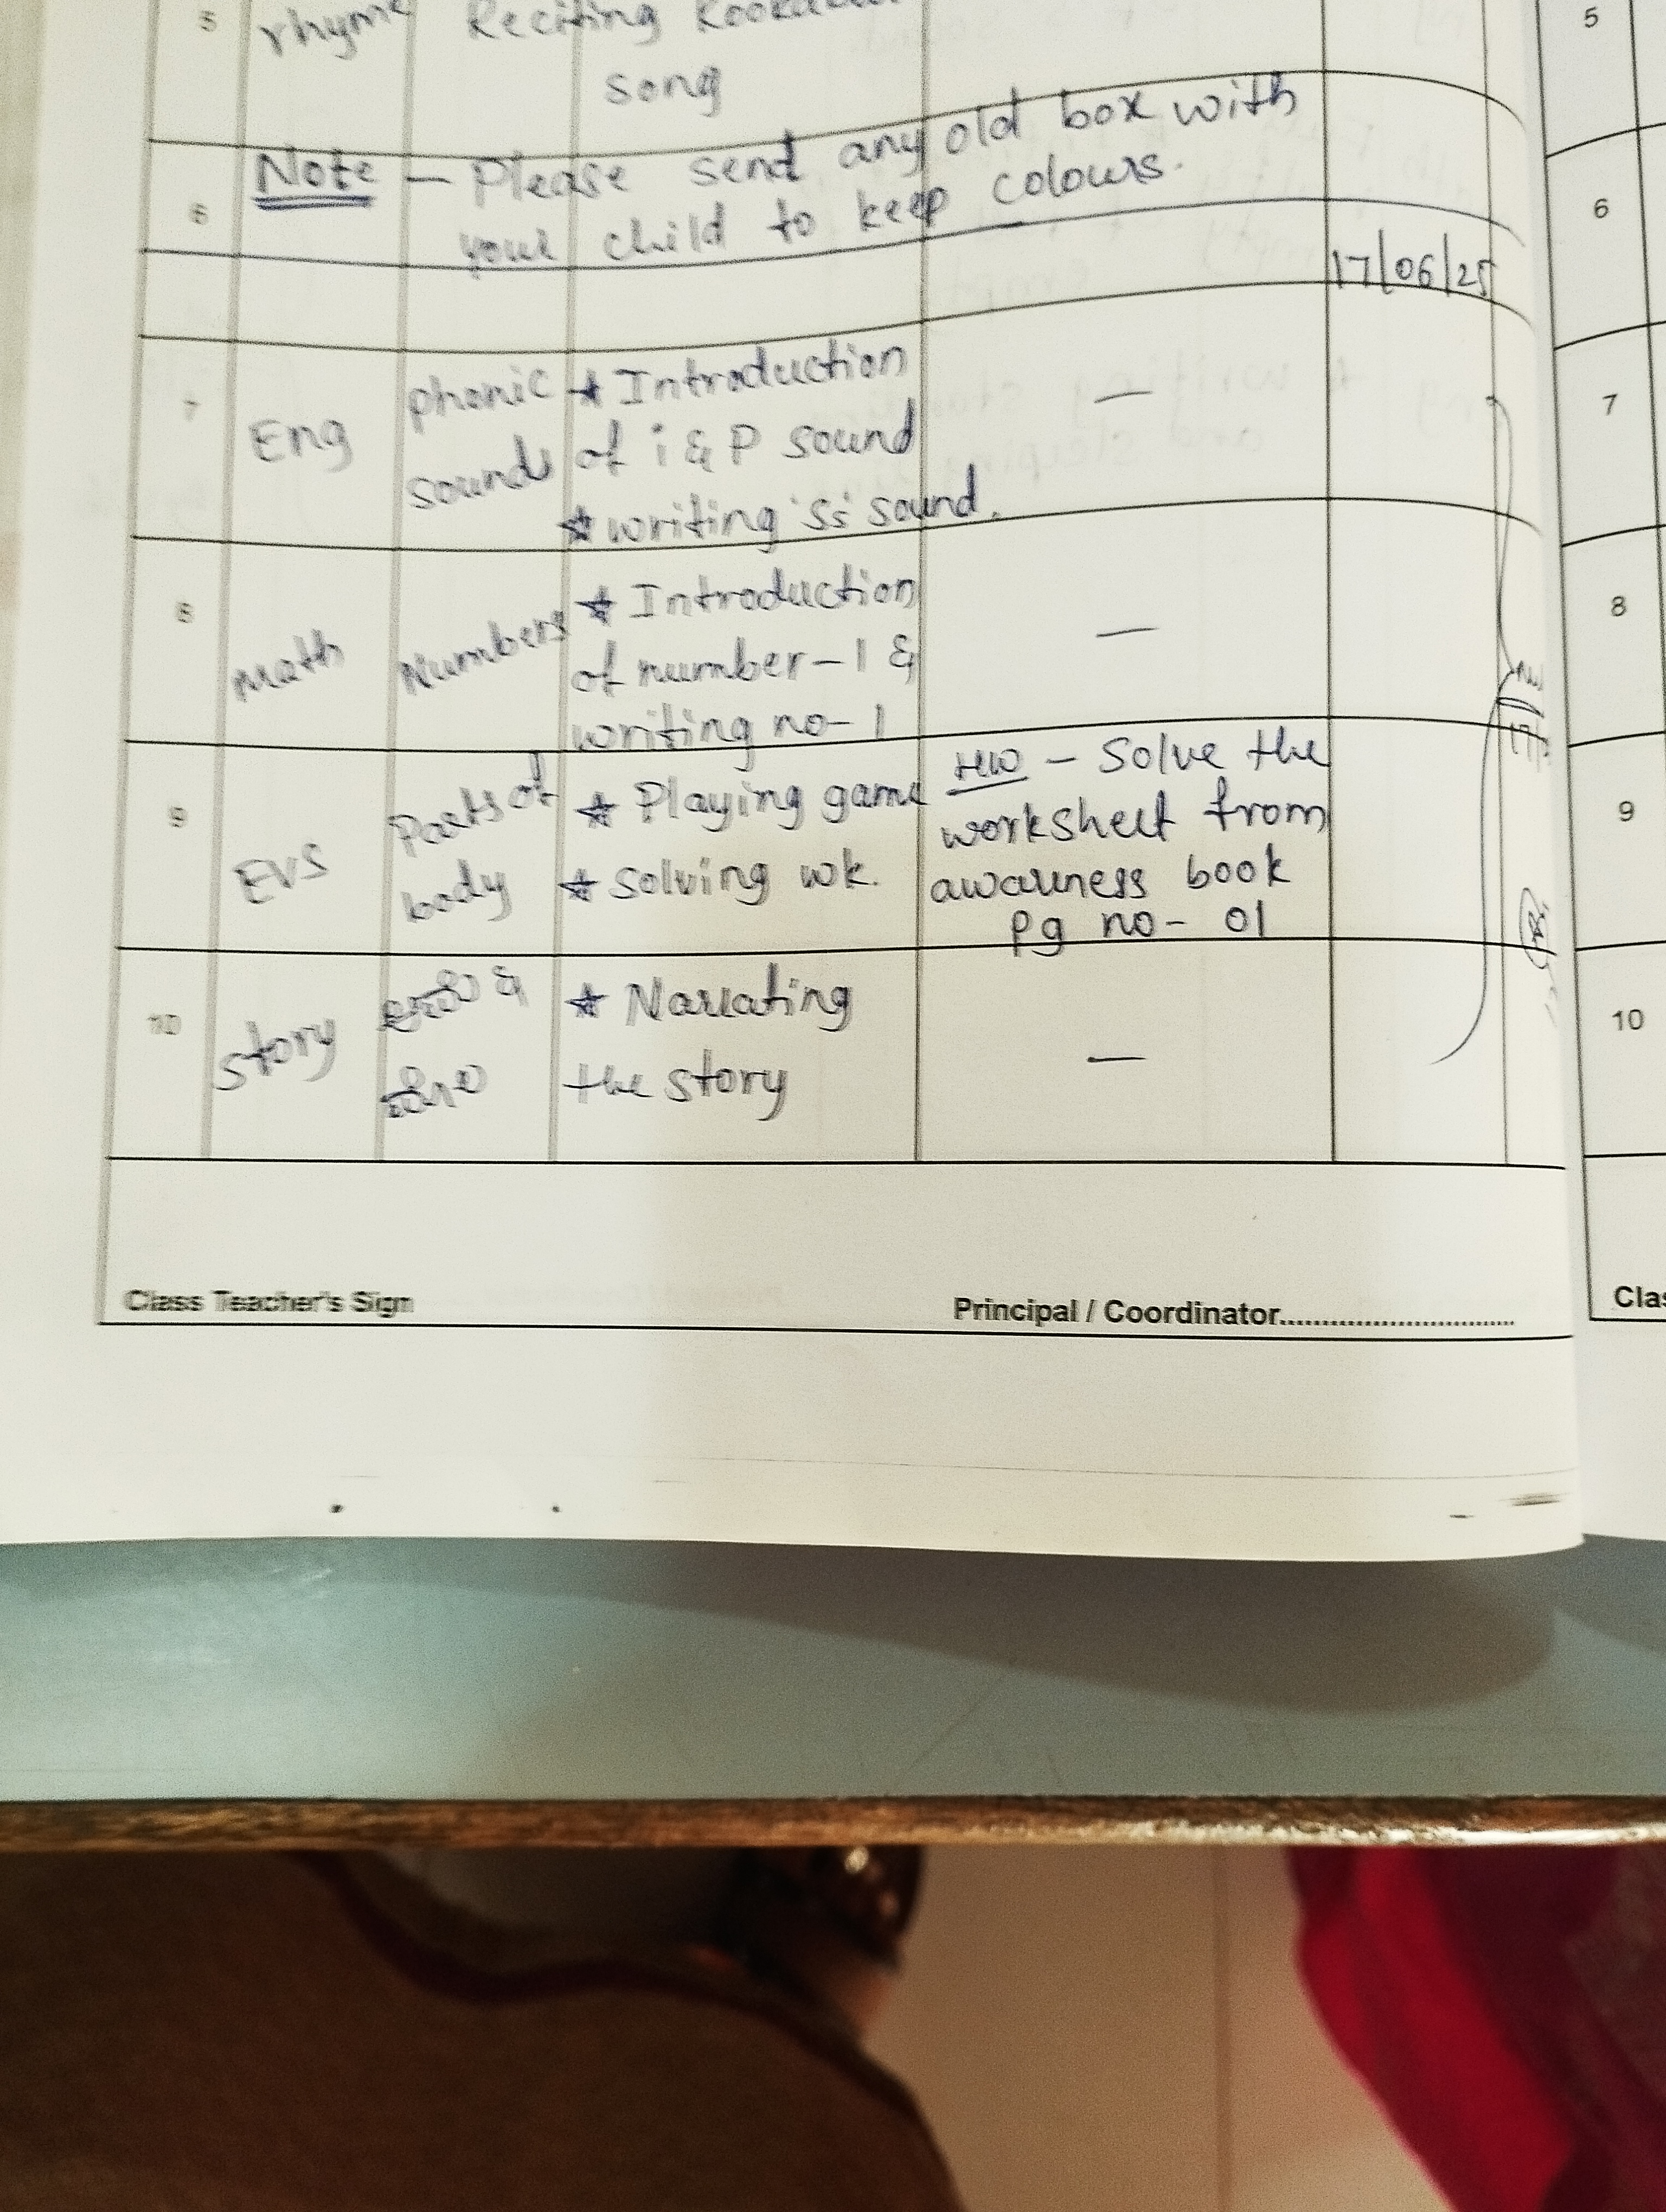 5 rhyme Reciting
song
Note - Please send any old box with
6 your child to keep colours.
17/06/25
7 Eng phonic sounds ★ Introduction of i & P sound —
★ writing 'Ss' sound.
8 Math Numbers ★ Introduction of number-1 & writing no-1 —
9 EVS Parts of body ★ Playing game
★ Solving wk.
HW - Solve the
worksheet from
awarness book
Pg no- 01
10 Story & ★ Narrating
the story —
Class Teacher's Sign
Principal / Coordinator..............................
5
6
7
8
9
10
Clas